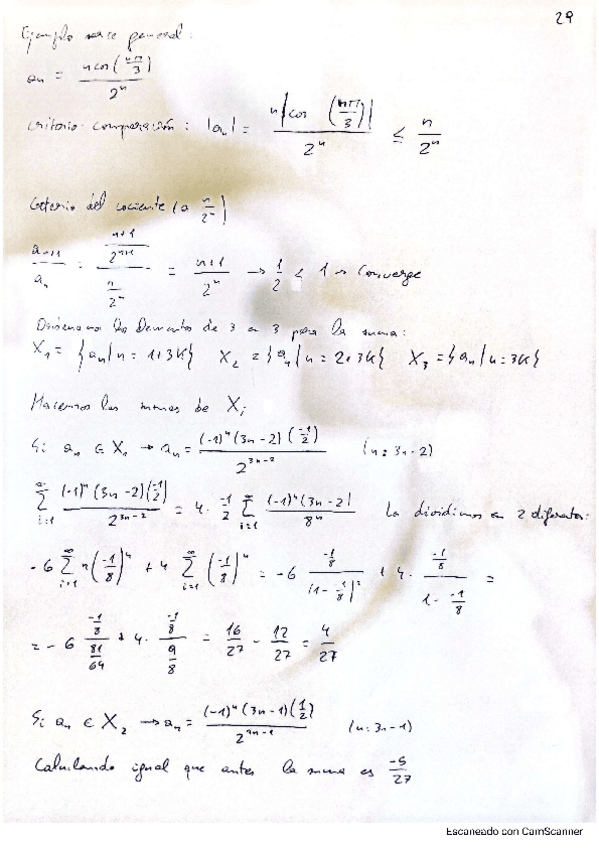 29
Ejemplo serie general:
an = n cos(nπ/3) / 2^n
Criterio comparación: |an| = n|cos (nπ/3)| / 2^n ≤ n / 2^n
Criterio del cociente (a n/2^n)
an+1 / an = ((n+1)/2^(n+1)) / (n/2^n) = (n+1)/2^n → 1/2 < 1 → Converge
los elementos de 3 en 3 para la suma:
X1 = {an | n = 1+3K} X2 = {an | n = 2+3K} X3 = {an | n = 3K}
Hacemos las sumas de Xi
Si an ∈ X1 → an = (-1)^n (3n-2) (-1/2) / 2^(3n-2) (n = 3n-2)
∑_{i=1}^∞ (-1)^n (3n-2) (-1/2) / 2^(3n-2) = 4 · -1/2 ∑_{i=1}^∞ (-1)^n (3n-2) / 8^n La dividimos en 2 diferentes:
-6 ∑_{i=1}^∞ n (-1/8)^n + 4 ∑_{i=1}^∞ (-1/8)^n = -6 (-1/8) / (1 - -1/8)^2 + 4 · (-1/8) / (1 - -1/8) =
= -6 (-1/8) / (81/64) + 4 · (-1/8) / (9/8) = 16/27 - 12/27 = 4/27
Si an ∈ X2 → an = (-1)^n (3n-1) (1/2) / 2^(3n-1) (n = 3n-1)
Calculando igual que antes la suma es -5/27
Escaneado con CamScanner